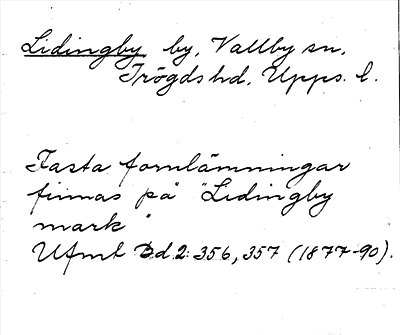 Lidingby by, Vallby sn,
Trögds hd, Upps. l.
Fasta fornlämningar
finnas på "Lidingby
mark"
Ufmt Bd 2: 356, 357 (1877-90).